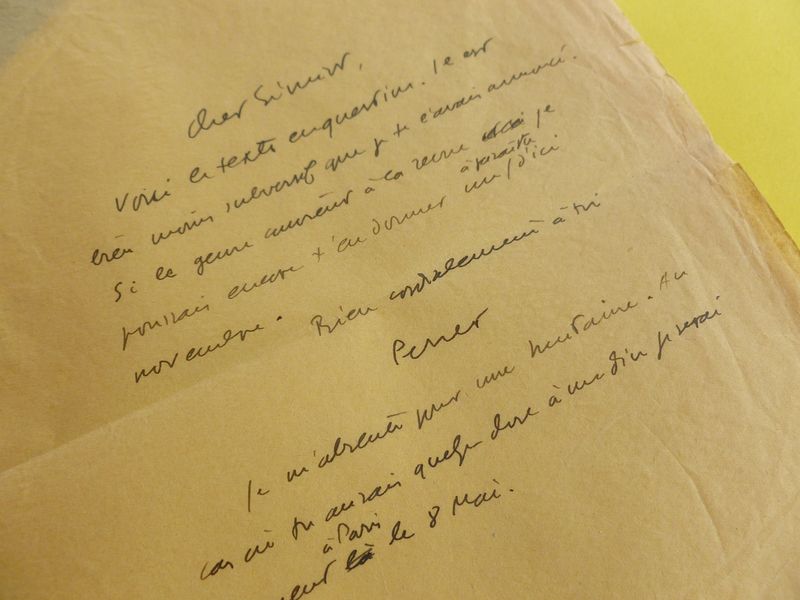 Cher
Voici le texte en question. Il est
bien moins subversif que je te l'avais annoncé.
Si le genre convient à la revue je
à paraître
pourrais encore t'en donner un / d'ici
novembre. Bien cordialement à toi
Perret
Je m'absente pour une huitaine. Au
cas où tu aurais quelque chose à me dire je serai
à Paris
le 8 Mai.